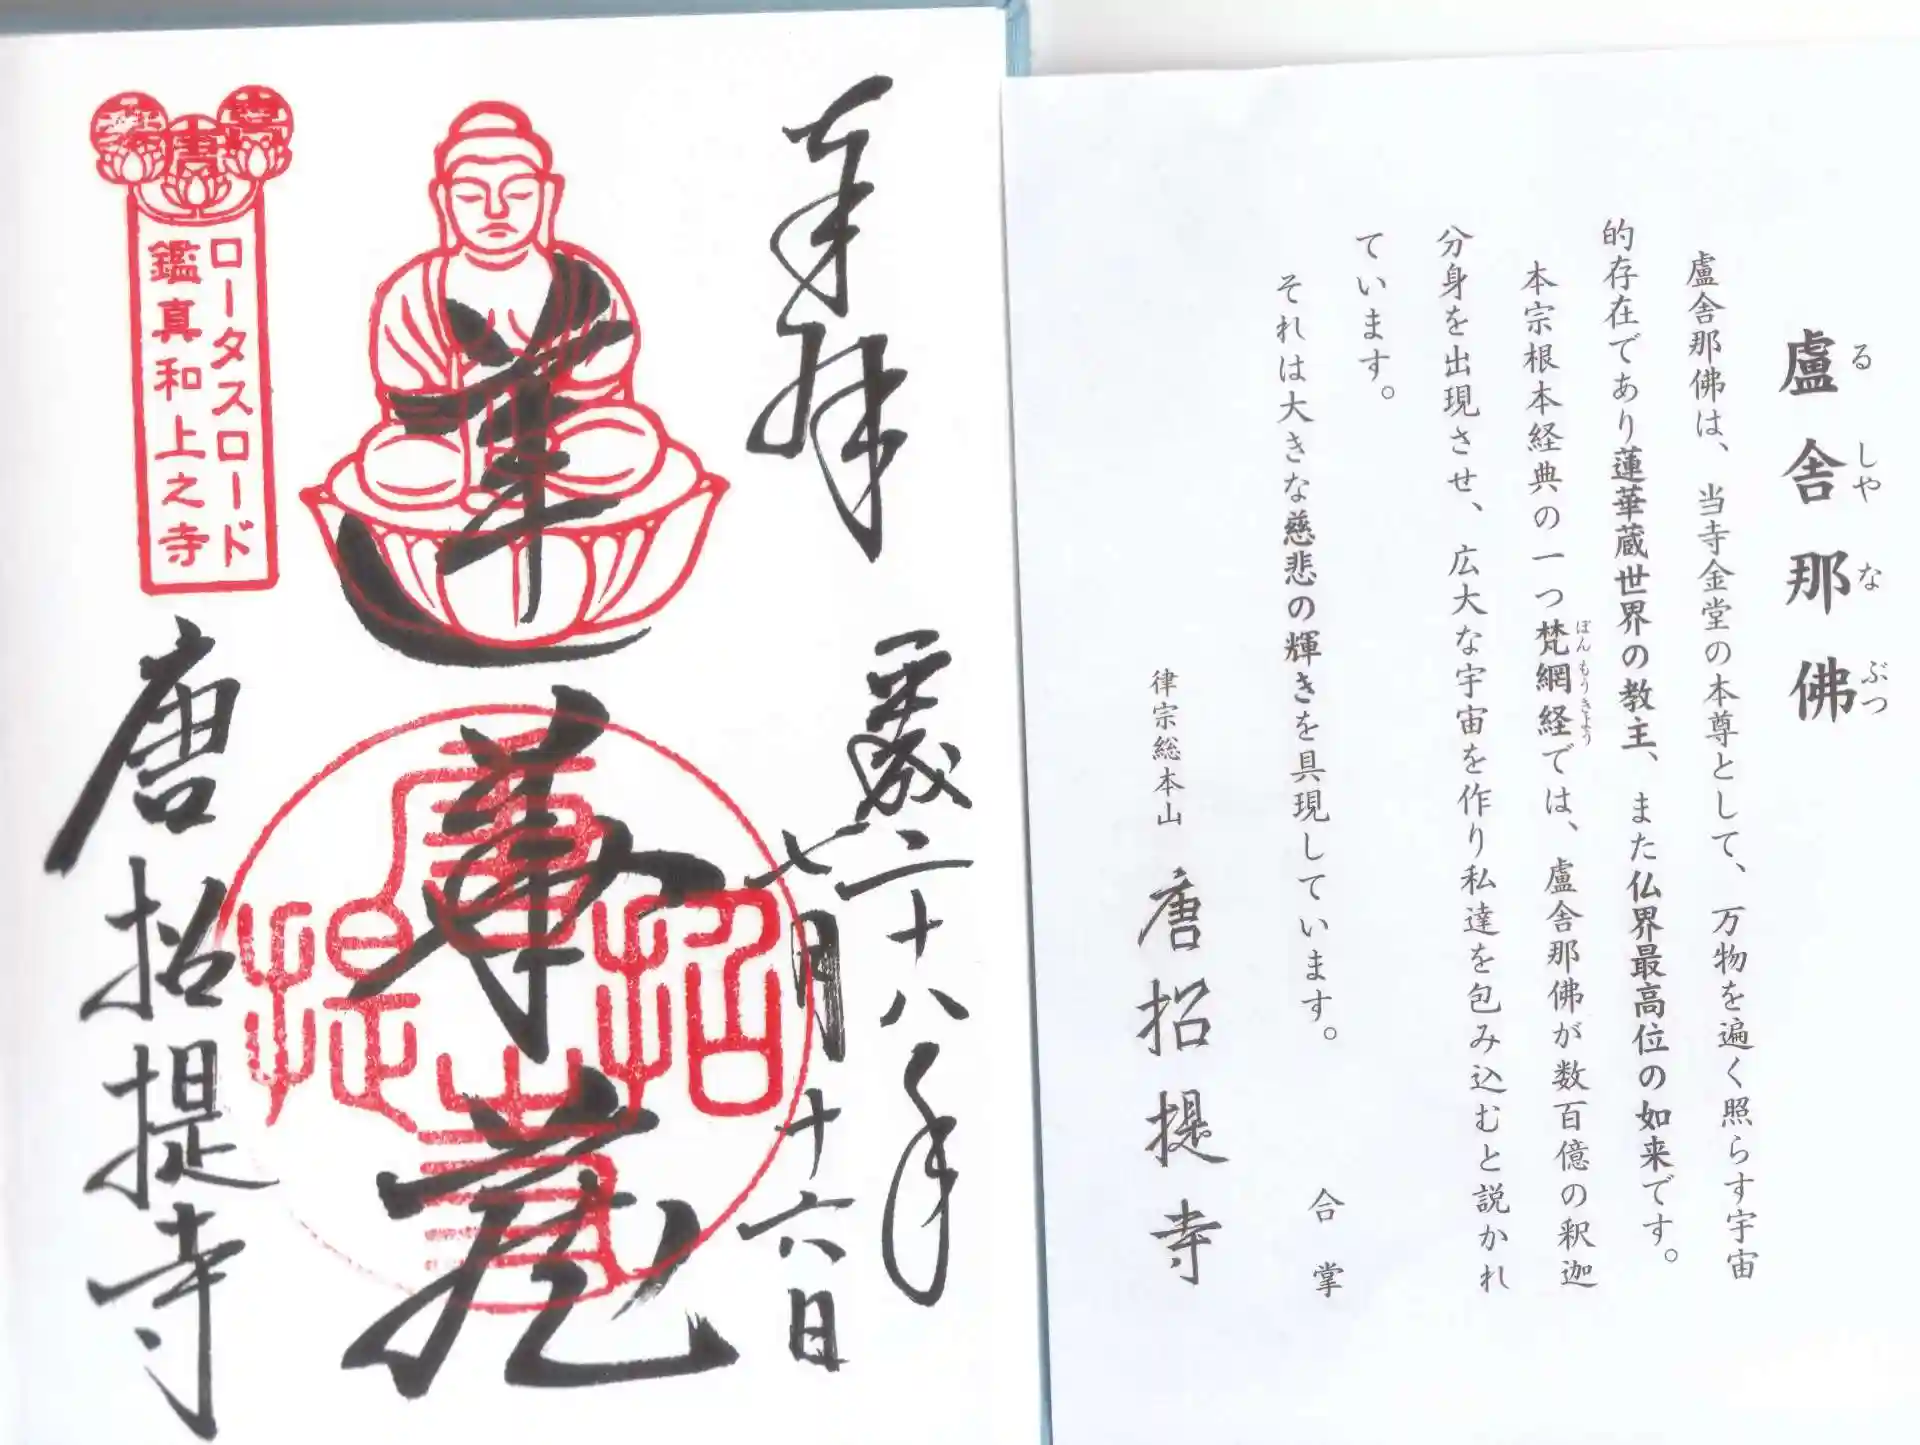 盧舎那佛
るしやなぶつ
盧舎那佛は、当寺金堂の本尊として、万物を遍く照らす宇宙
的存在であり蓮華蔵世界の教主、また仏界最高位の如来です。
本宗根本経典の一つ梵網経では、盧舎那佛が数百億の釈迦
ぼんもうきょう
分身を出現させ、広大な宇宙を作り私達を包み込むと説かれ
ています。
それは大きな慈悲の輝きを具現しています。
合掌
律宗総本山 唐招提寺
奉拝
平成二十八年
七月十六日
蓮華蔵
唐招提寺
ロータスロード
鑑真和上之寺
唐
招
提
寺